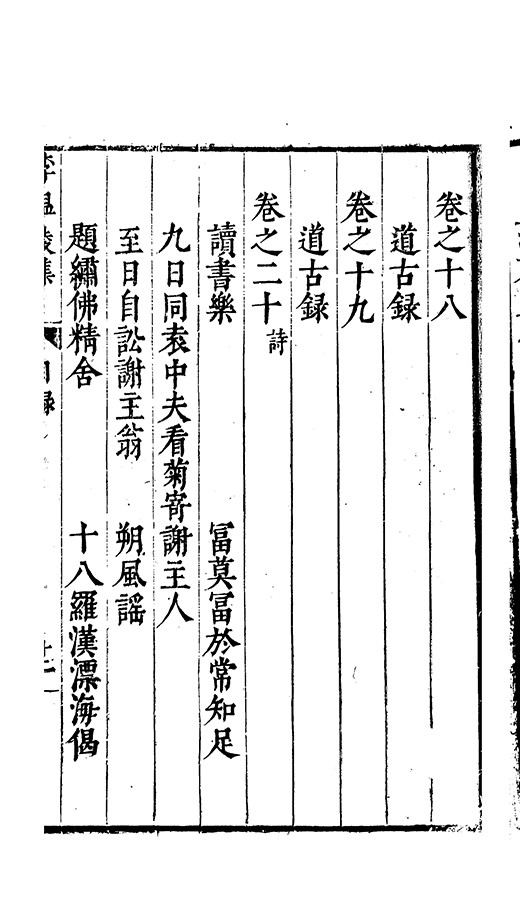 卷之十八
道古録
卷之十九
道古録
卷之二十 詩
讀書樂 冨莫冨於常知足
九日同袁中夫看菊寄謝主人
至日自訟謝主翁 朔風謡
題繡佛精舍 十八羅漢漂海偈
李温陵集 目録